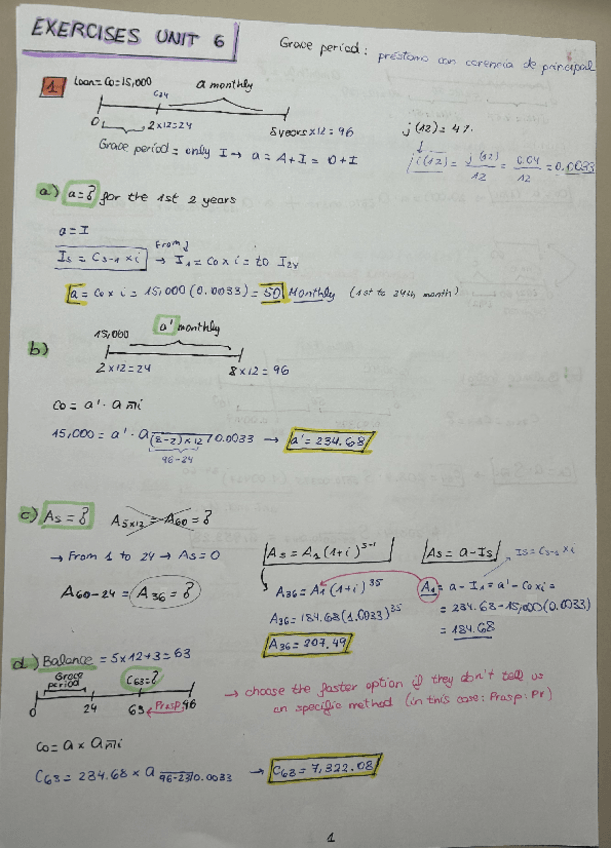 EXERCISES UNIT 6
Grace period: préstamo con carencia de principal
1
Loan = Co = 15,000
a monthly
C24
0
2x12=24
8 years x 12 = 96
j(12) = 4%
Grace period = only I → a = A + I = 0 + I
i(12) = j(12)/12 = 0.04/12 = 0.0033
a) a = ? for the 1st 2 years
a = I
Is = Cs-1 x i
From ↓
→ I1 = Co x i = to I24
a = Co x i = 15,000 (0.0033) = 50 Monthly (1st to 24th month)
b)
15,000
a' monthly
2 x 12 = 24
8 x 12 = 96
Co = a' · a n i
15,000 = a' · a (8-2) x 12 0.0033 → a' = 234.68
96-24
c) As = ? A5x12 = A60 = ?
→ From 1 to 24 → As = 0
As = A1 (1+i)^s-1
As = a - Is
Is = Cs-1 x i
A60-24 = A36 = ?
A36 = A1 (1+i)^35
A1 = a - I1 = a' - Co x i =
A36 = 184.68 (1.0033)^35
= 234.68 - 15,000 (0.0033)
= 184.68
A36 = 207.49
d) Balance = 5 x 12 + 3 = 63
Grace period
C63 = ?
0
24
63
Prosp
96
→ choose the faster option if they don't tell us
an specific method (in this case: Prosp: Pr)
Co = a x a n i
C63 = 234.68 x a 96-63 0.0033 → C63 = 7,322.08
1